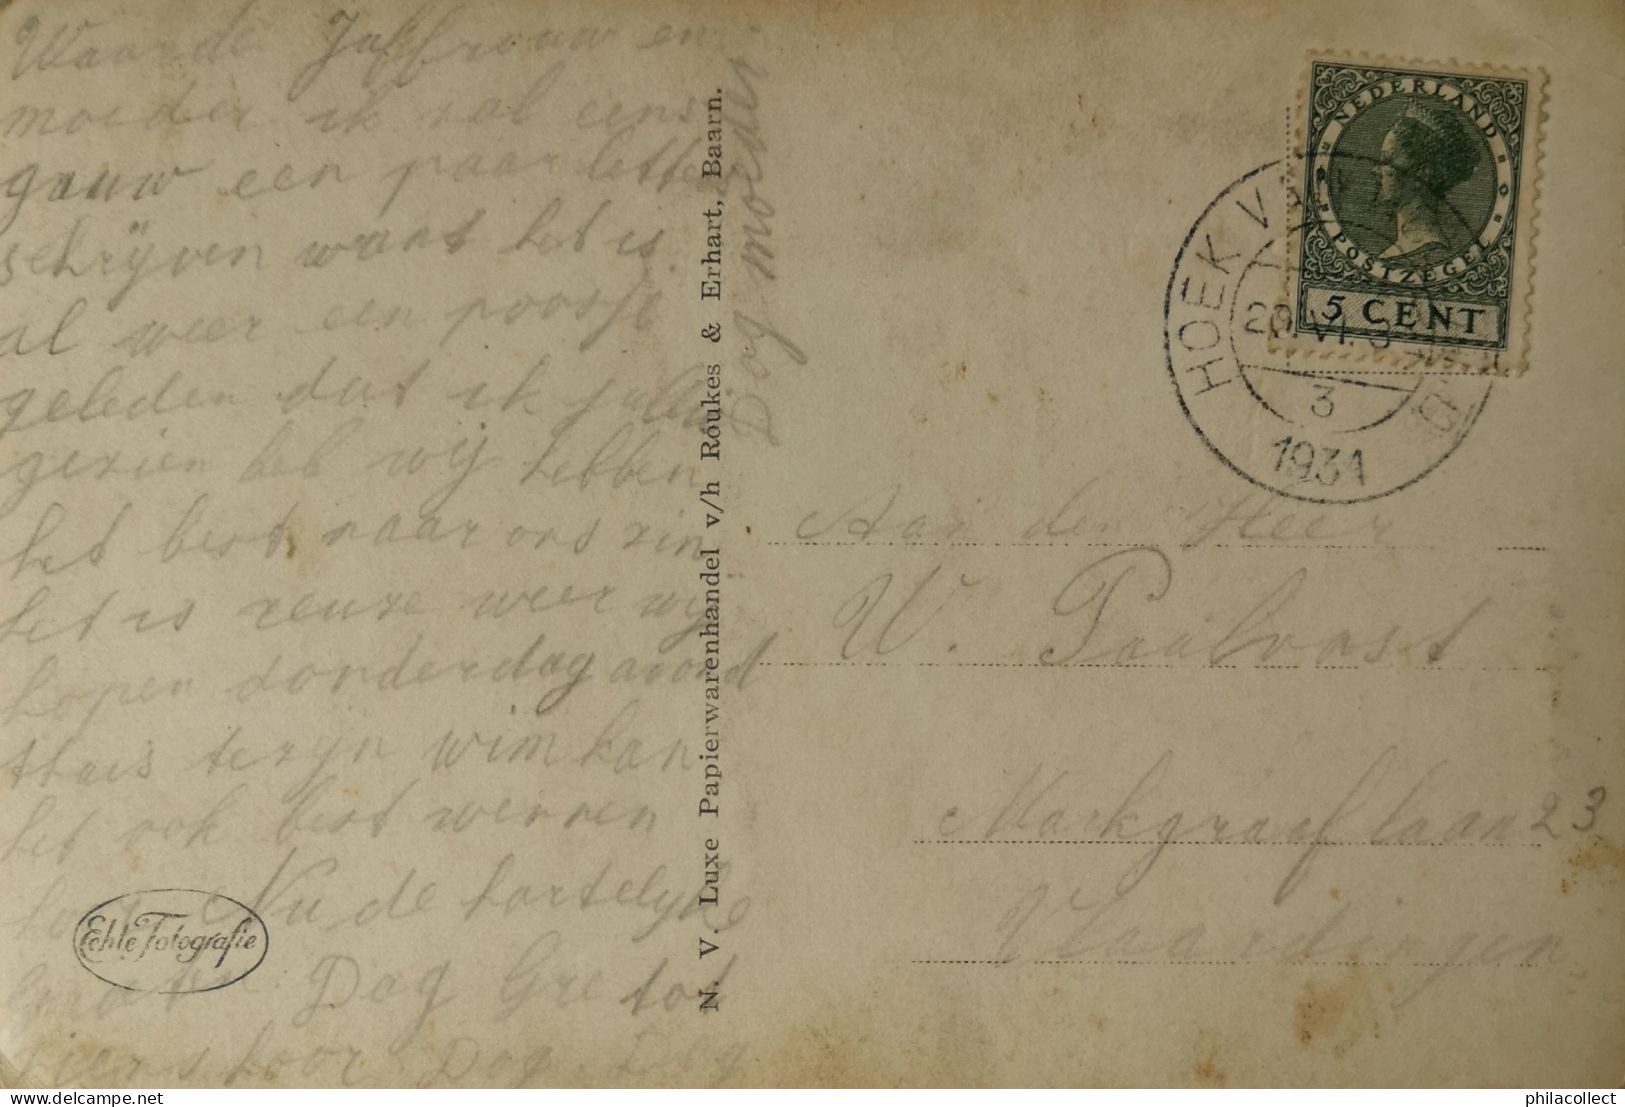 Waarde Juffrouw en
moeder ik zal eens
gauw een paar letters
schrijven want het is
al weer een poosje
geleden dat ik jullie
gezien heb wij hebben
het best naar ons zin
het is reuze weer wij
hopen donderdag avond
thuis te zijn wim kan
het ook best wennen
hoor Nu de hartelijke
Groeten Dag Gre tot
ziens hoor. Dag. Dag
Dag moeder
N. V. Luxe Papierwarenhandel v/h Roukes & Erhart, Baarn.
Echte Fotografie
NEDERLAND
POSTZEGEL
5 CENT
HOEK VAN
VI
3
1931
Aan den Heer
W. Paalvast
Markgraaflaan 23
Vlaardingen
philacollect
www.delcampe.net